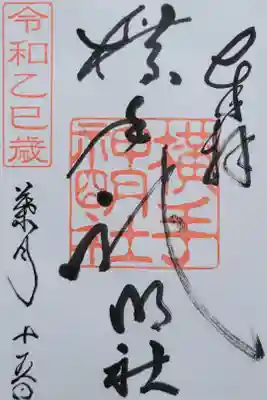 奉拝
横手神明社
横手
神明社
令和乙巳歳
葉月 十五日